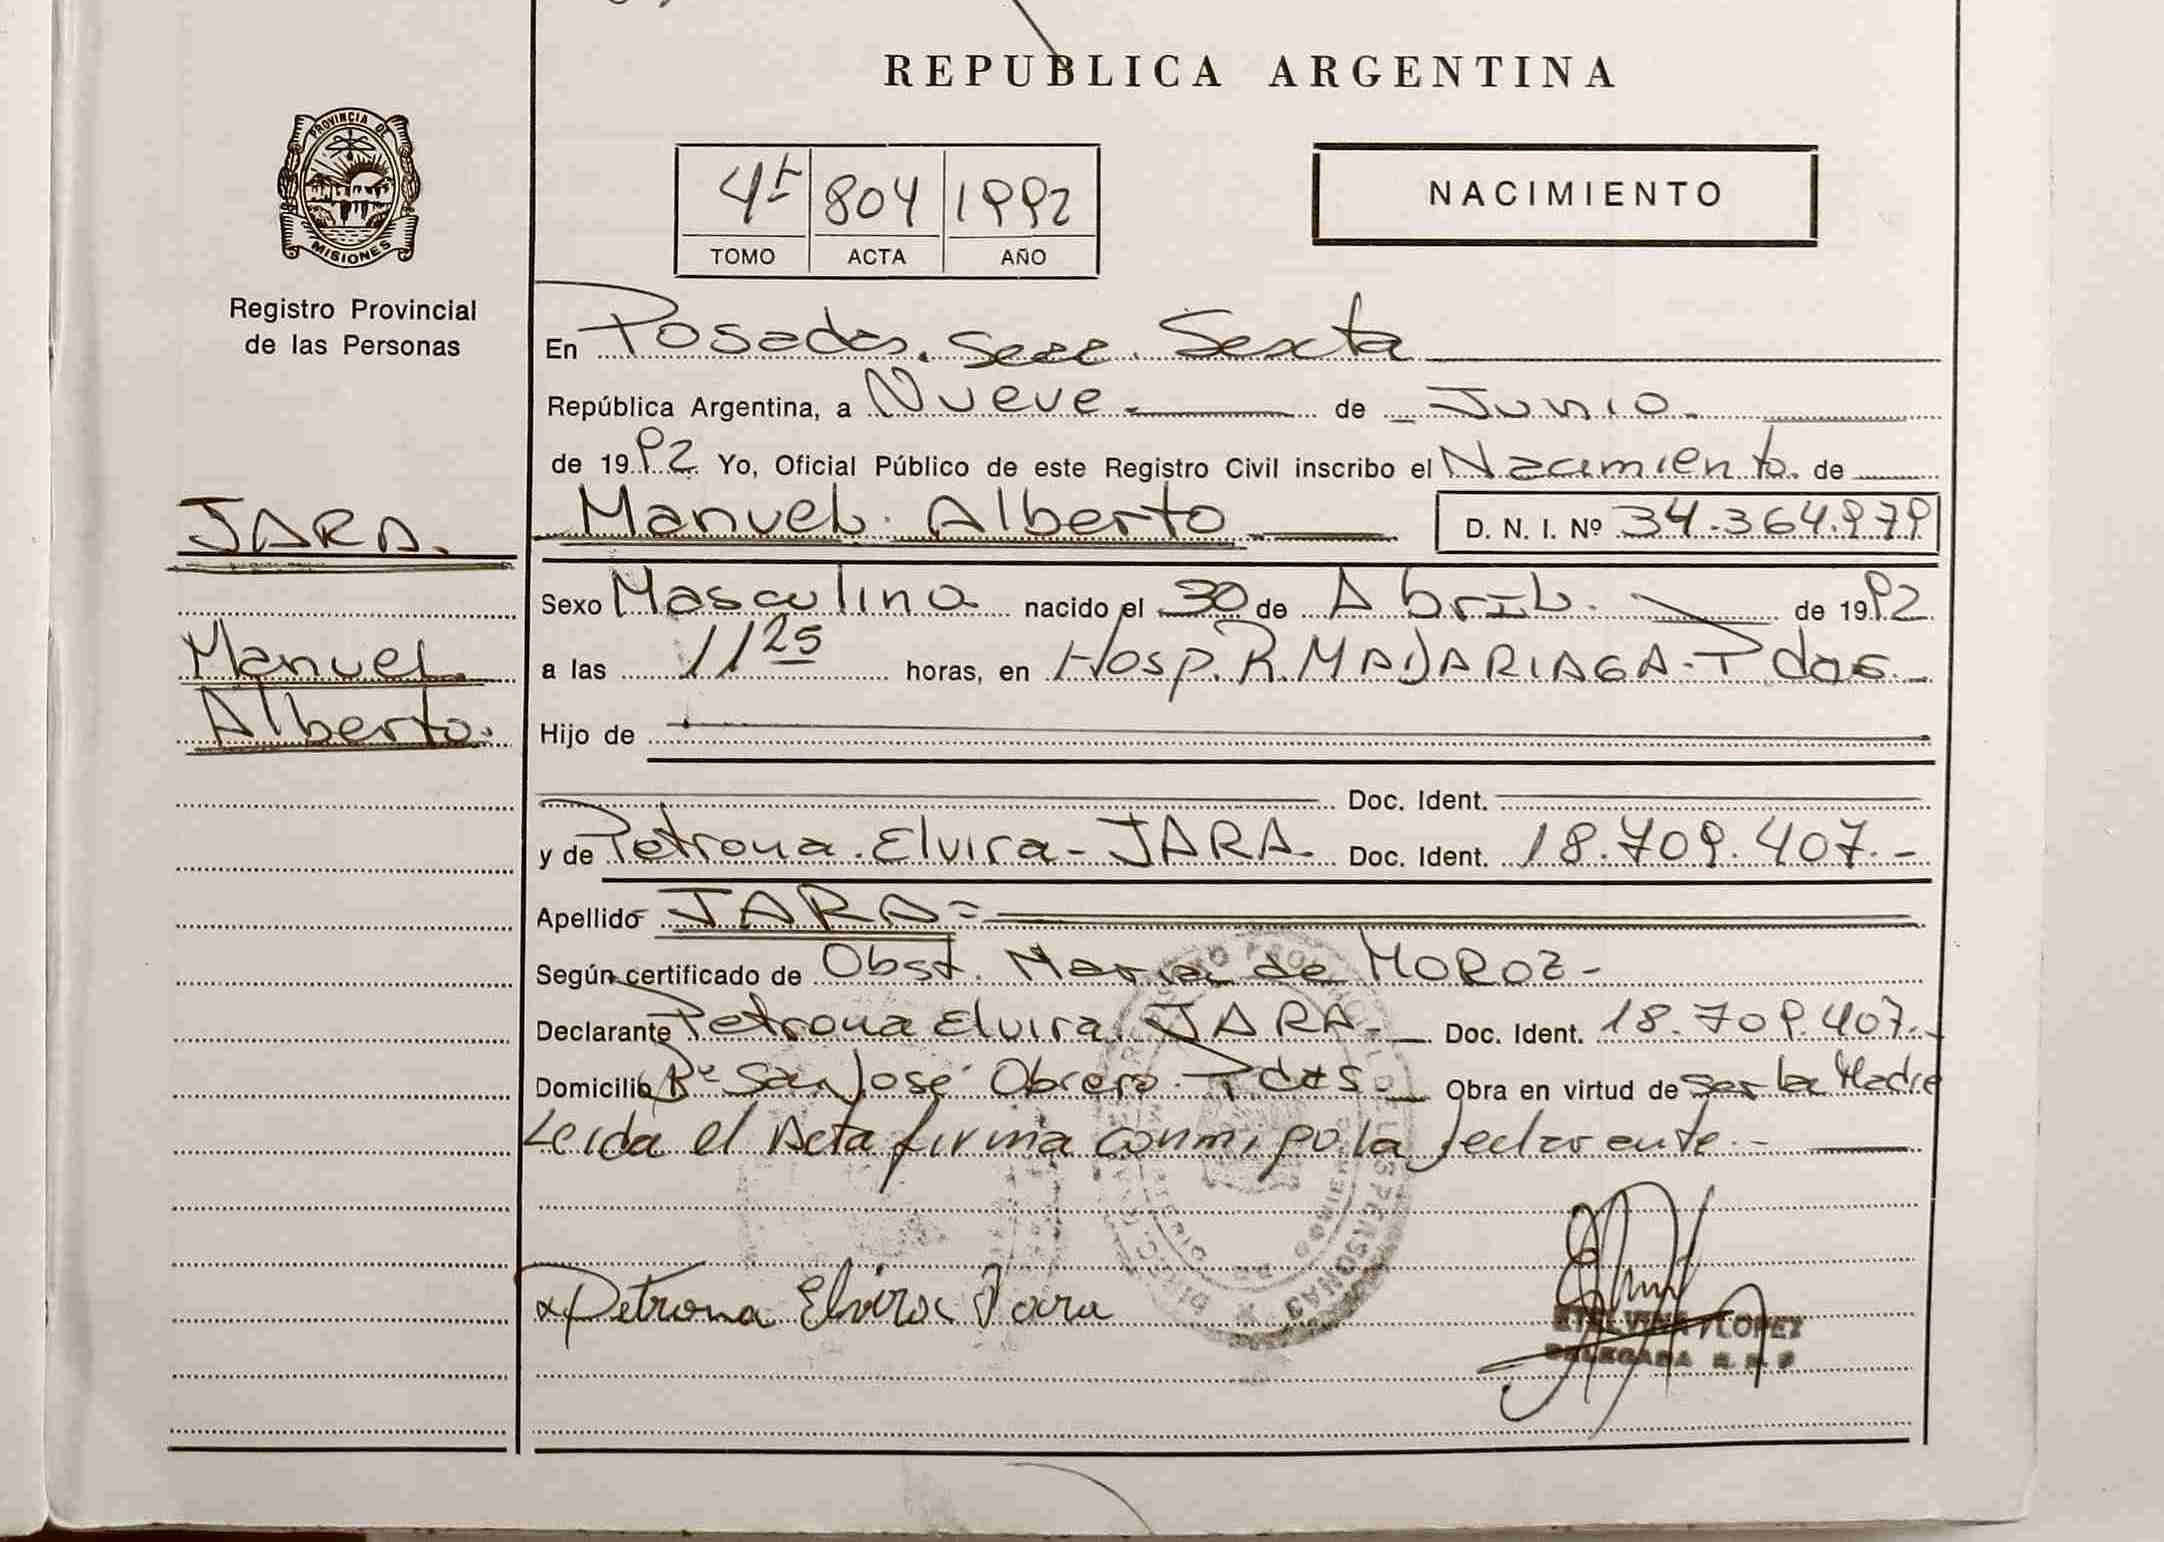 REPUBLICA ARGENTINA
PROVINCIA DE
MISIONES
Registro Provincial
de las Personas
4t 804 1992
TOMO ACTA AÑO
NACIMIENTO
En Posadas. Secc. Sexta
República Argentina, a Nueve de Junio.
de 1992 Yo, Oficial Público de este Registro Civil inscribo el Nacimiento. de
JARA.
Manuel. Alberto D. N. I. Nº 34.364.979
Sexo Masculino nacido el 30 de Abril. de 1992
Manuel
Alberto.
a las 11 25 horas, en Hosp. R. MADARIAGA - Pdas.
Hijo de
Doc. Ident.
y de Petrona. Elvira - JARA Doc. Ident. 18.709.407.-
Apellido JARA=
Según certificado de Obst. Maria de MOROZ-
Declarante Petrona Elvira JARA- Doc. Ident. 18.709.407.-
Domicilio Bº San José Obrero. Pdas. Obra en virtud de ser la Madre
Leida el Acta firma conmigo la declarante.-
x Petrona Elvira Jara
LOPEZ
DELEGADA R. P. P